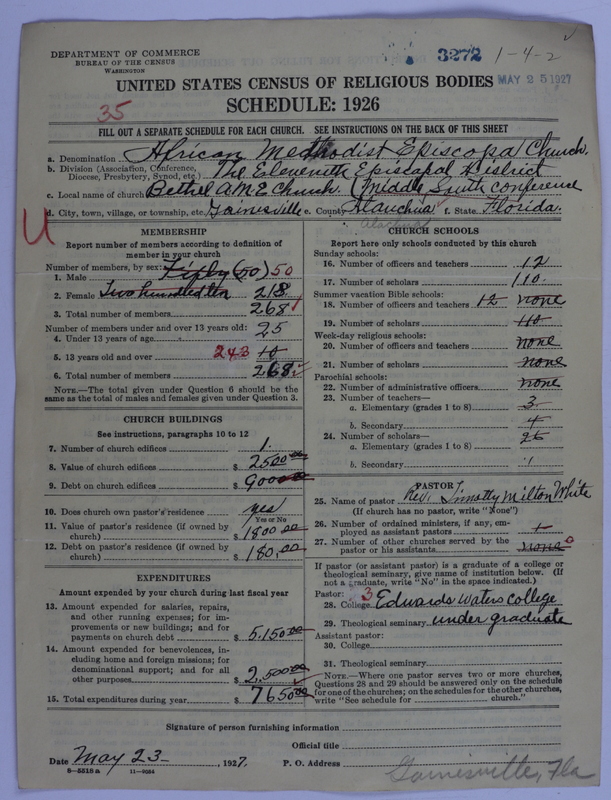 DEPARTMENT OF COMMERCE
BUREAU OF THE CENSUS
WASHINGTON
3272 1-4-2
MAY 25 1927
UNITED STATES CENSUS OF RELIGIOUS BODIES
SCHEDULE: 1926
35
FILL OUT A SEPARATE SCHEDULE FOR EACH CHURCH. SEE INSTRUCTIONS ON THE BACK OF THIS SHEET
a. Denomination African Methodist Episcopal Church.
b. Division (Association, Conference, Diocese, Presbytery, Synod, etc.) The Eleventh Episcapal District
c. Local name of church Bethel A M E Church. (Middle South conference
d. City, town, village, or township, etc. Gainesville e. County Alauchua f. State Florida.
Alachua
U
MEMBERSHIP
Report number of members according to definition of
member in your church
Number of members, by sex:
1. Male (50) 50
2. Female Two hundred ten 218
3. Total number of members 268
Number of members under and over 13 years old:
4. Under 13 years of age 25
5. 13 years old and over 243 10
6. Total number of members 268
NOTE.—The total given under Question 6 should be the
same as the total of males and females given under Question 3.
CHURCH BUILDINGS
See instructions, paragraphs 10 to 12
7. Number of church edifices 1.
8. Value of church edifices $ 2500.00
9. Debt on church edifices $ 9000
10. Does church own pastor's residence? yes
Yes or No
11. Value of pastor's residence (if owned by
church) $ 1800.00
12. Debt on pastor's residence (if owned by
church) $ 180.00
EXPENDITURES
Amount expended by your church during last fiscal year
13. Amount expended for salaries, repairs,
and other running expenses; for im-
provements or new buildings; and for
payments on church debt $ 5.150.00
14. Amount expended for benevolences, in-
cluding home and foreign missions; for
denominational support; and for all
other purposes $ 2,500.00
15. Total expenditures during year $ 7650.00
CHURCH SCHOOLS
Report here only schools conducted by this church
Sunday schools:
16. Number of officers and teachers 12
17. Number of scholars 110.
Summer vacation Bible schools:
18. Number of officers and teachers 12 none
19. Number of scholars 110
Week-day religious schools:
20. Number of officers and teachers none
21. Number of scholars none
Parochial schools:
22. Number of administrative officers none
23. Number of teachers—
a. Elementary (grades 1 to 8) 3
b. Secondary 4
24. Number of scholars—
a. Elementary (grades 1 to 8) 26
b. Secondary
PASTOR
25. Name of pastor Rev. Timothy Milton White
(If church has no pastor, write "None")
26. Number of ordained ministers, if any, em-
ployed as assistant pastors 1
27. Number of other churches served by the
pastor or his assistants none 0
If pastor (or assistant pastor) is a graduate of a college or
theological seminary, give name of institution below. (If
not a graduate, write "No" in the space indicated.)
Pastor: 3
28. College Edwards Waters College
29. Theological seminary under graduate
Assistant pastor:
30. College
31. Theological seminary
NOTE.—Where one pastor serves two or more churches,
Questions 28 and 29 should be answered only on the schedule
for one of the churches; on the schedules for the other churches,
write "See schedule for church."
Signature of person furnishing information
Official title
Date May 23 , 1927. P. O. Address Gainesville, Fla
8—5518 a 11—9054